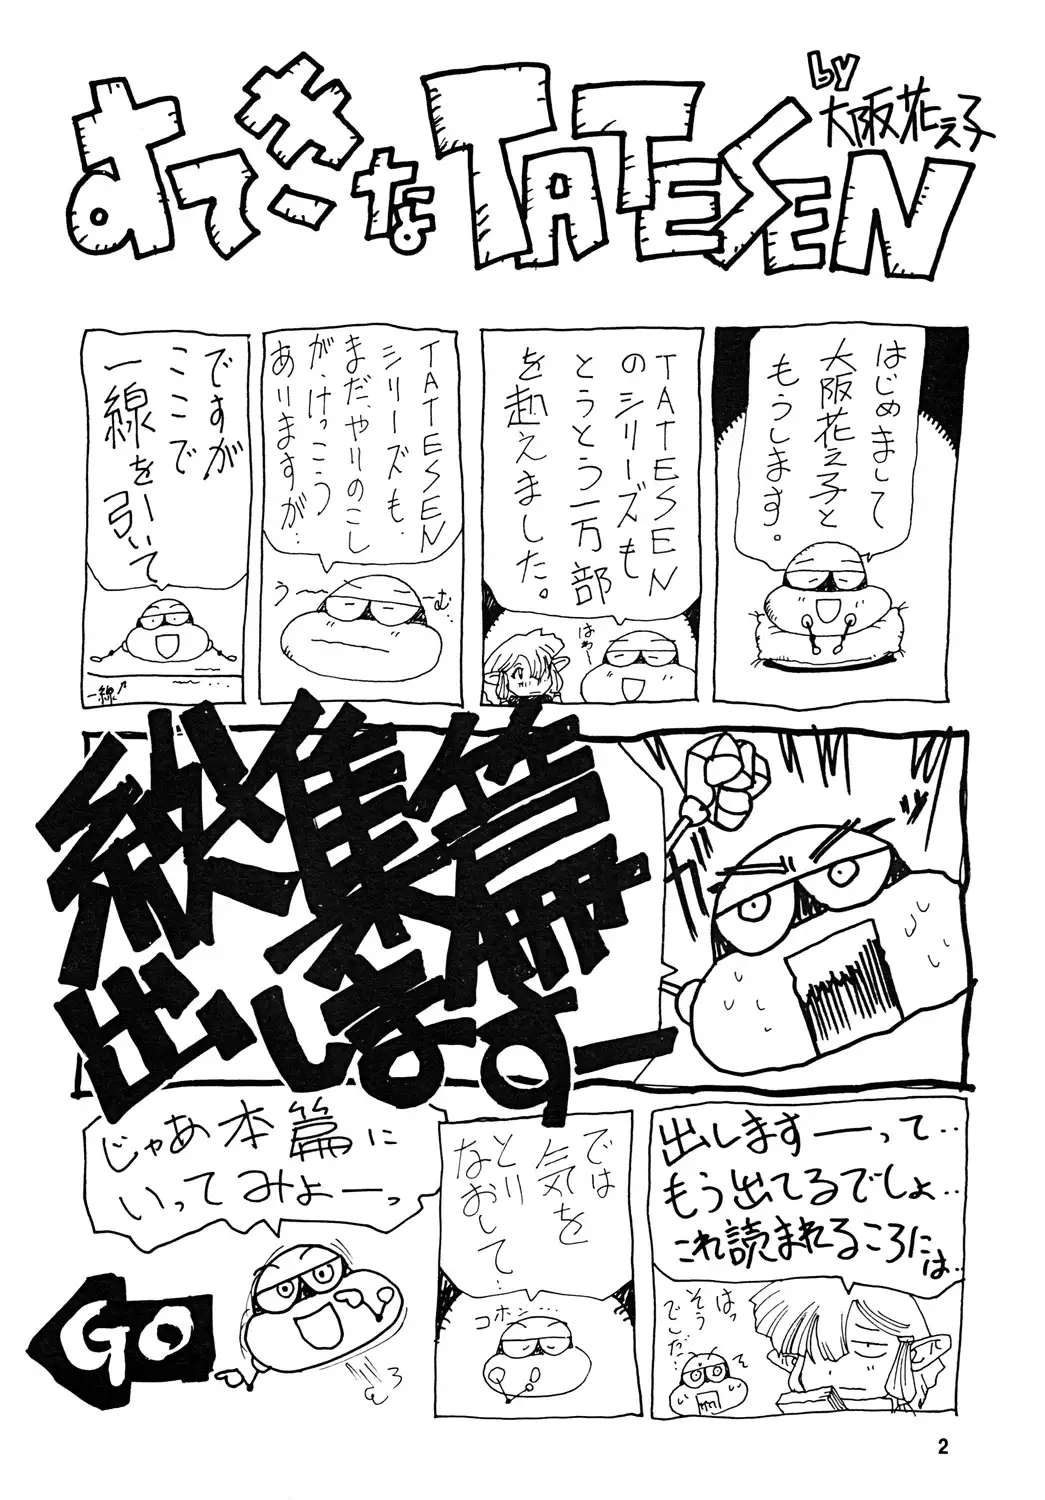 すてきなTATESEN
by
大阪花え子
はじめまして
大阪花え子と
もうします。
TATESEN
のシリーズも
とうとう一万部
を越えました。
はわー
TATESEN
シリーズも、
まだ、やりのこし
が、けっこう
ありますが…
うーーむ…
ですが
ここで
一線を引いて
一線↗
縦集篇
出しますー
出しますーって…
もう出てるでしょ…
これ読まれるころには…
はっ
そう
でした…
では
気を
とり
なおして…
コホン…
じゃあ本篇に
いってみょーっ
GO
2